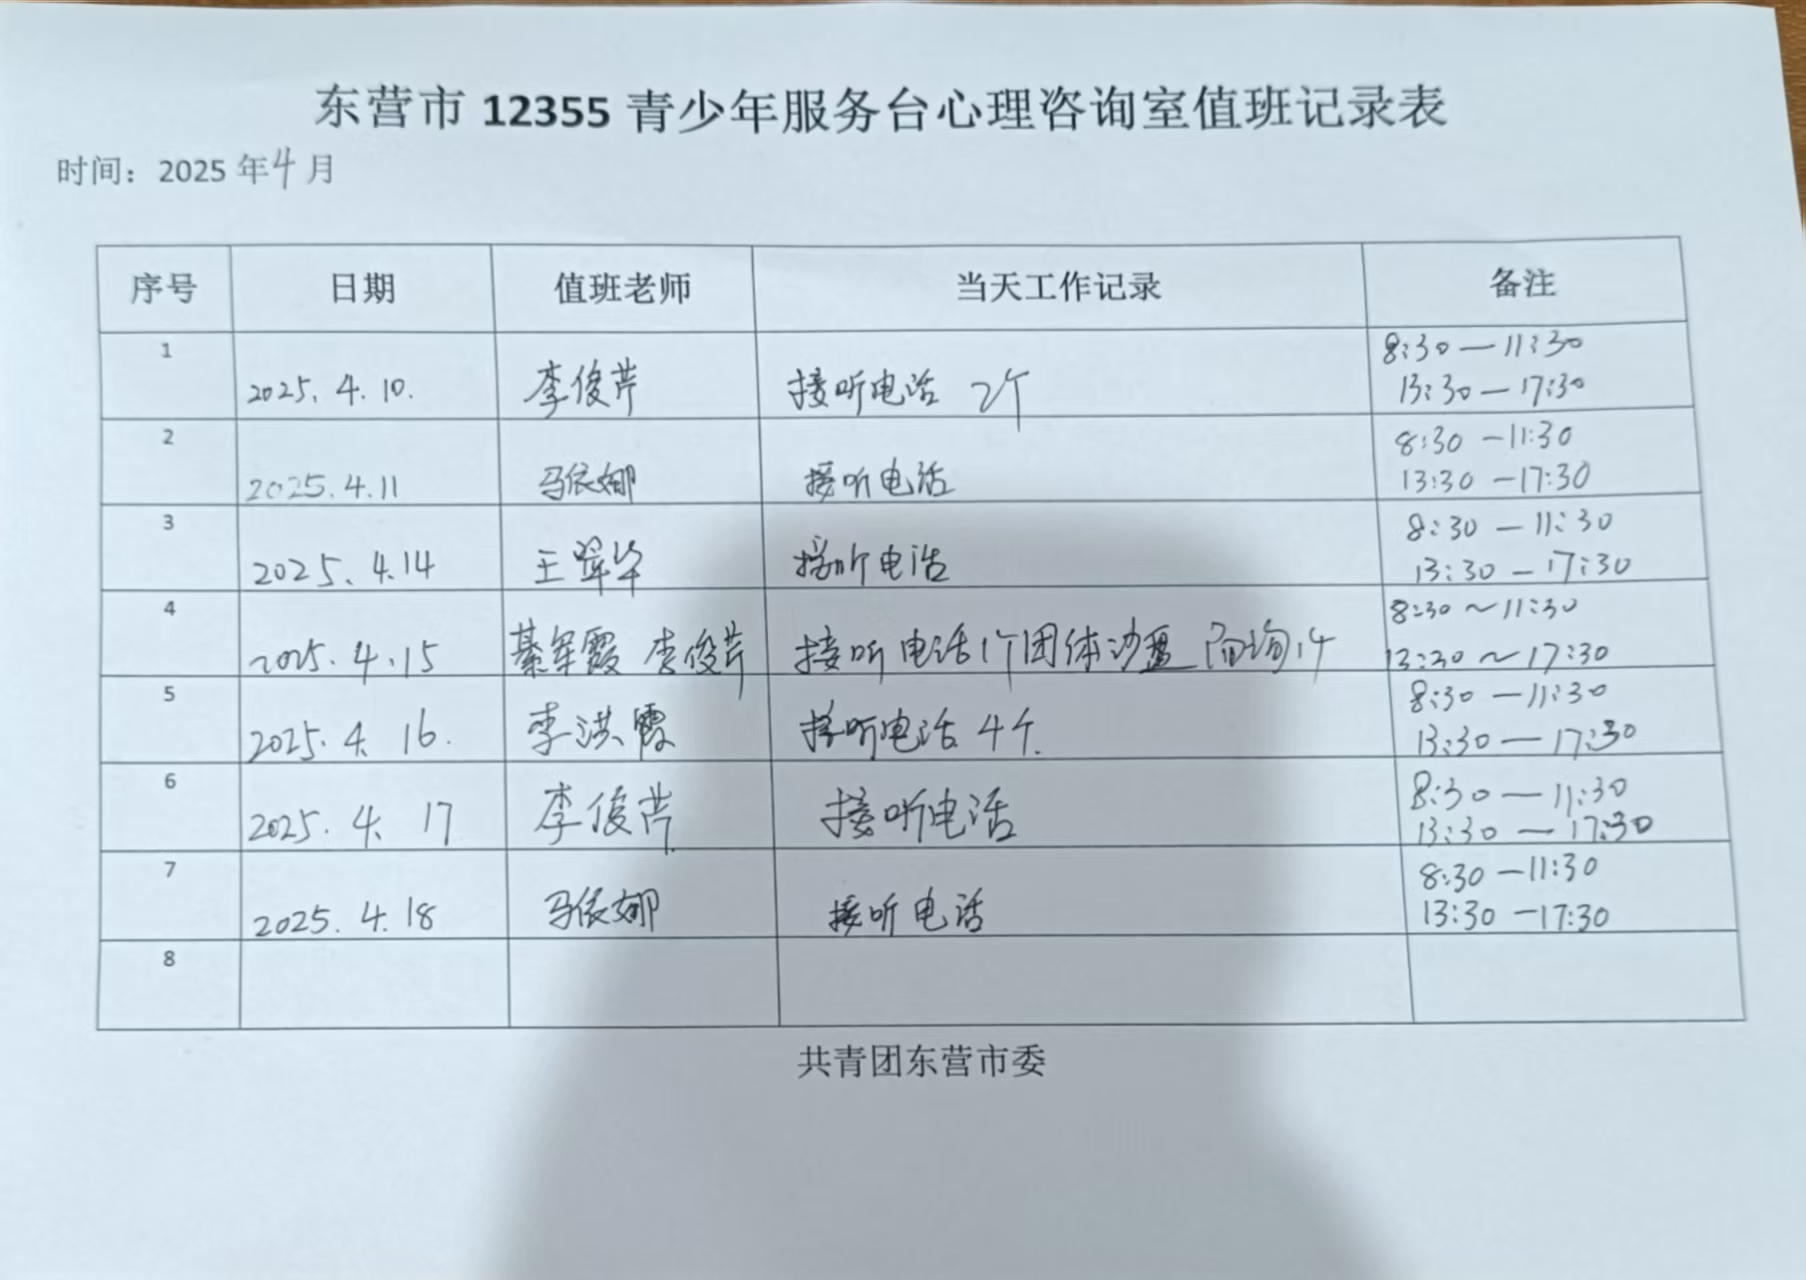 东营市 12355 青少年服务台心理咨询室值班记录表
时间：2025 年 4 月
序号 日期 值班老师 当天工作记录 备注
1 2025.4.10. 李俊芹 接听电话 2个 8:30—11:30
13:30—17:30
2 2025.4.11 马依娜 接听电话 8:30—11:30
13:30—17:30
3 2025.4.14 王翠华 接听电话 8:30—11:30
13:30—17:30
4 2025.4.15 綦军霞 李俊芹 接听电话1个团体沙盘 面询1个 8:30～11:30
13:30～17:30
5 2025.4.16. 李洪霞 接听电话4个. 8:30—11:30
13:30—17:30
6 2025.4.17 李俊芹 接听电话 8:30—11:30
13:30—17:30
7 2025.4.18 马依娜 接听电话 8:30—11:30
13:30—17:30
8
共青团东营市委